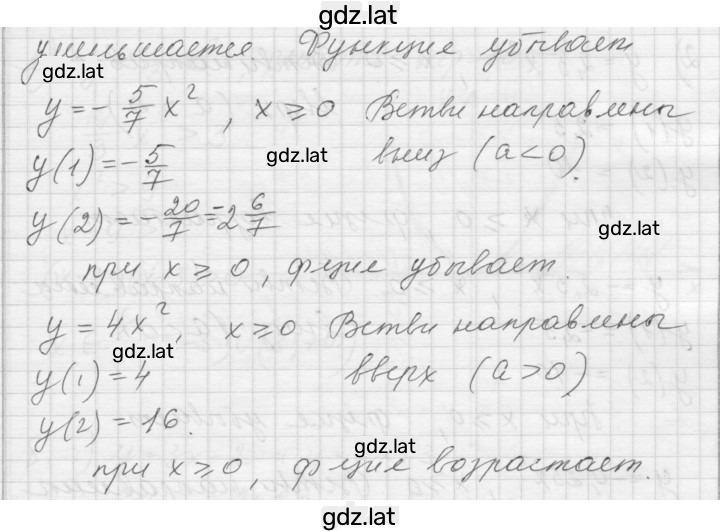 gdz.lat
уменьшается Функция убывает
gdz.lat
y = - 5/7 x², x ≥ 0 Ветви направлены
y(1) = - 5/7 gdz.lat вниз (a<0).
y(2) = - 20/7 = -2 6/7
gdz.lat
при x ≥ 0, ф-ция убывает.
y = 4x², x ≥ 0 Ветви направлены
gdz.lat
y(1) = 4 вверх (a>0)
y(2) = 16.
gdz.lat
при x ≥ 0, ф-ция возрастает.
gdz.lat